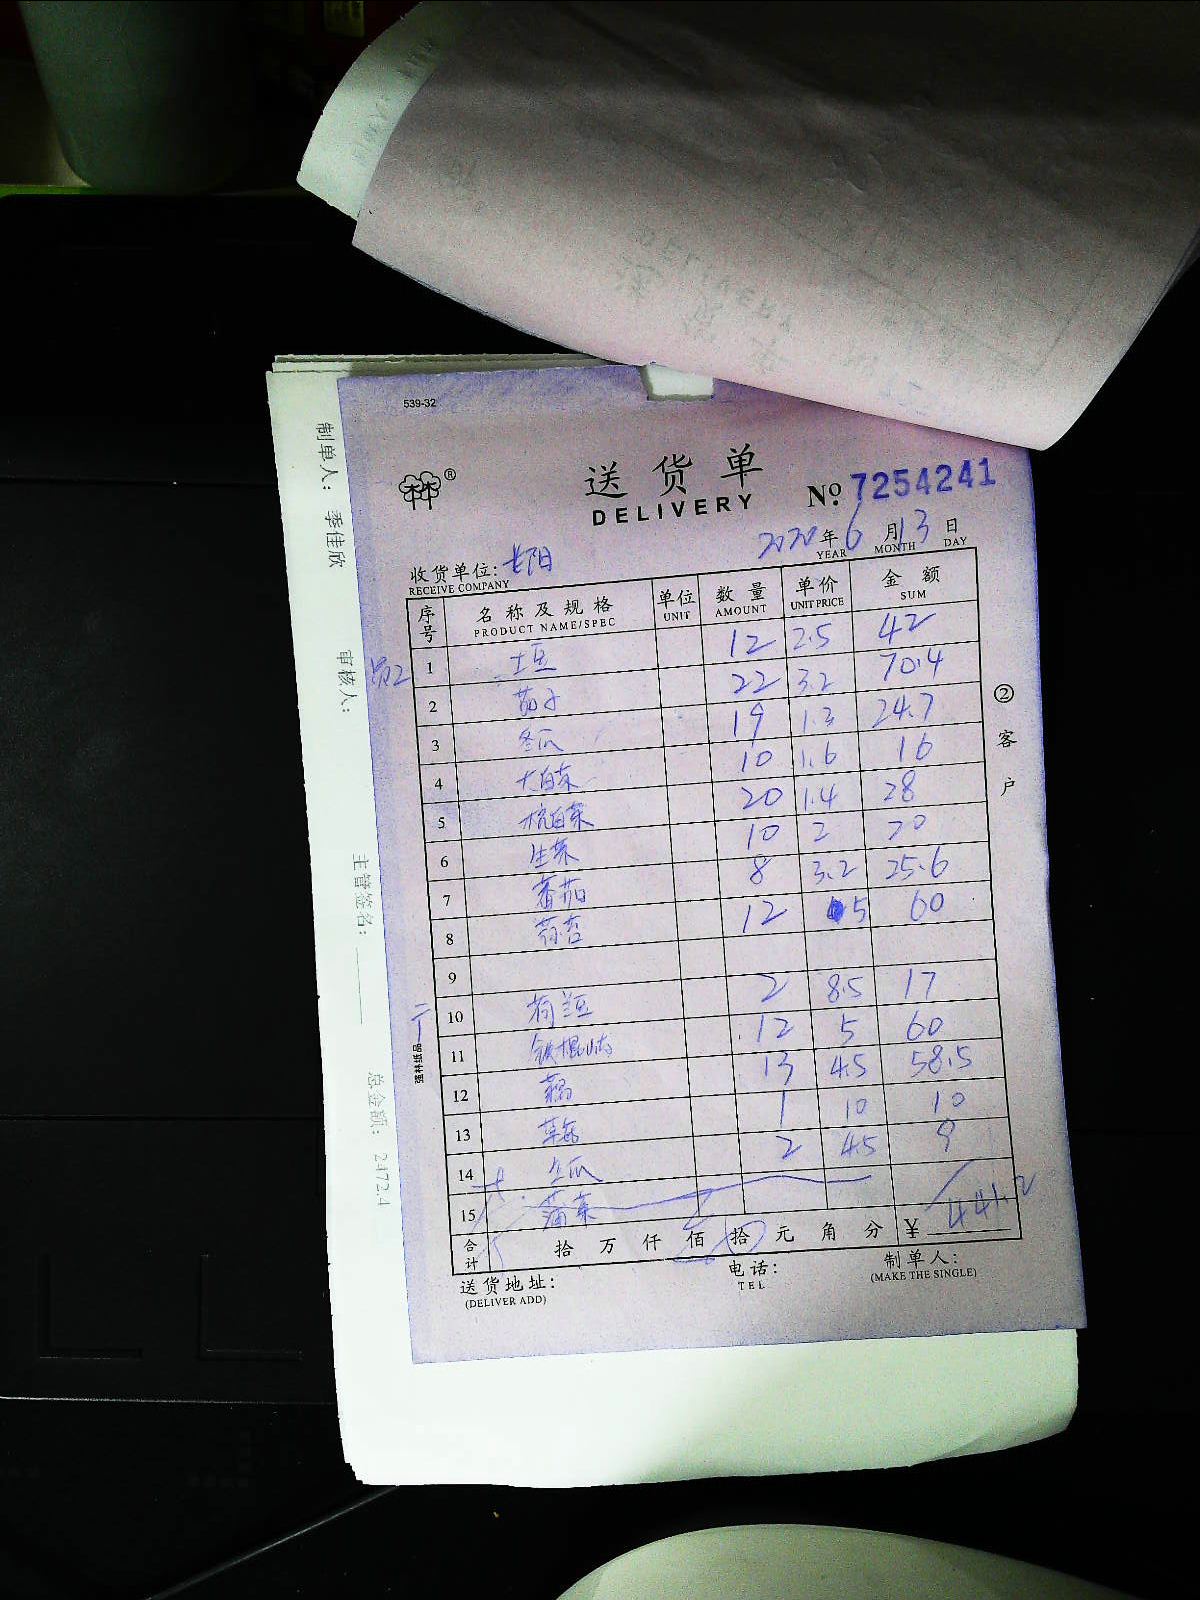 539-32
林®
送货单
DELIVERY
№ 7254241
2020年6月13日
YEAR MONTH DAY
收货单位:
RECEIVE COMPANY
序号 名称及规格 单位 数量 单价 金额
PRODUCT NAME/SPEC UNIT AMOUNT UNIT PRICE SUM
1 土豆 12 2.5 42
2 茄子 22 3.2 70.4
3 冬瓜 19 1.3 24.7
4 大白菜 10 1.6 16
5 杭白菜 20 1.4 28
6 生菜 10 2 20
7 番茄 8 3.2 25.6
8 12 5 60
9
10 荷兰豆 2 8.5 17
11 铁棍山药 12 5 60
12 藕 13 4.5 58.5
13 草菇 1 10 10
14 2 4.5 9
15 蒲菜
合计 拾万仟佰拾元角分 ¥ 441.2
送货地址:
(DELIVER ADD)
电话:
TEL
制单人:
(MAKE THE SINGLE)
②客户
强林纸品
制单人: 季佳欣
审核人:
主管签名:
总金额: 2472.4